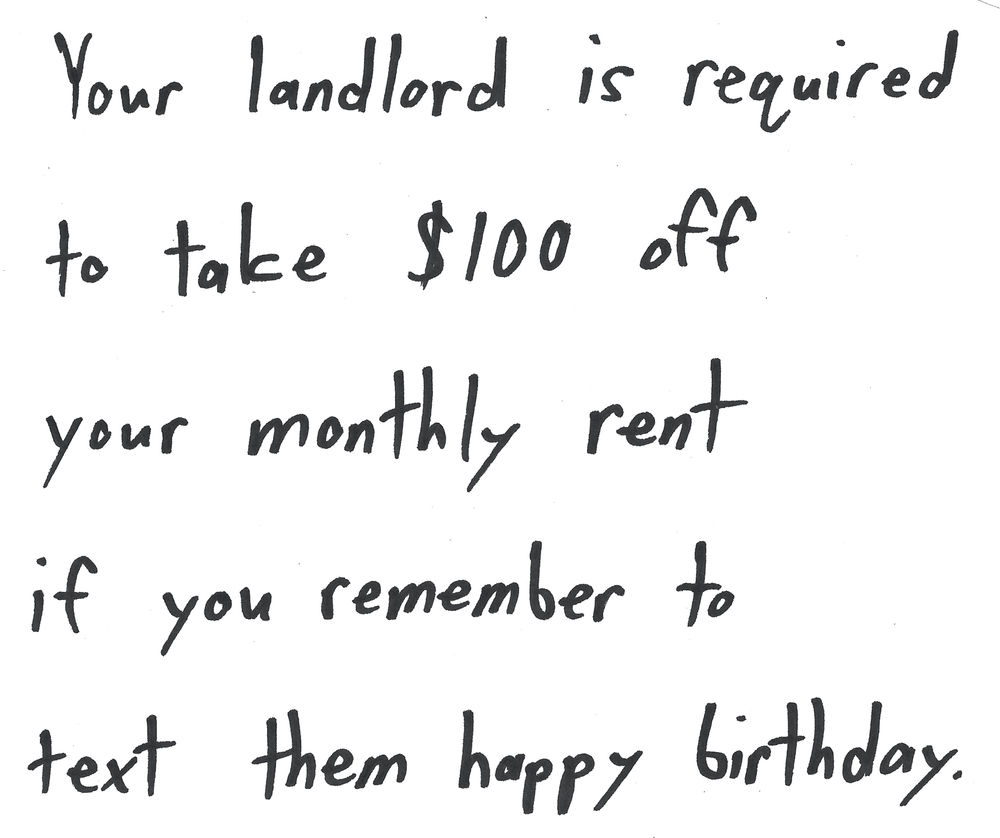 Your landlord is required
to take $100 off
your monthly rent
if you remember to
text them happy birthday.